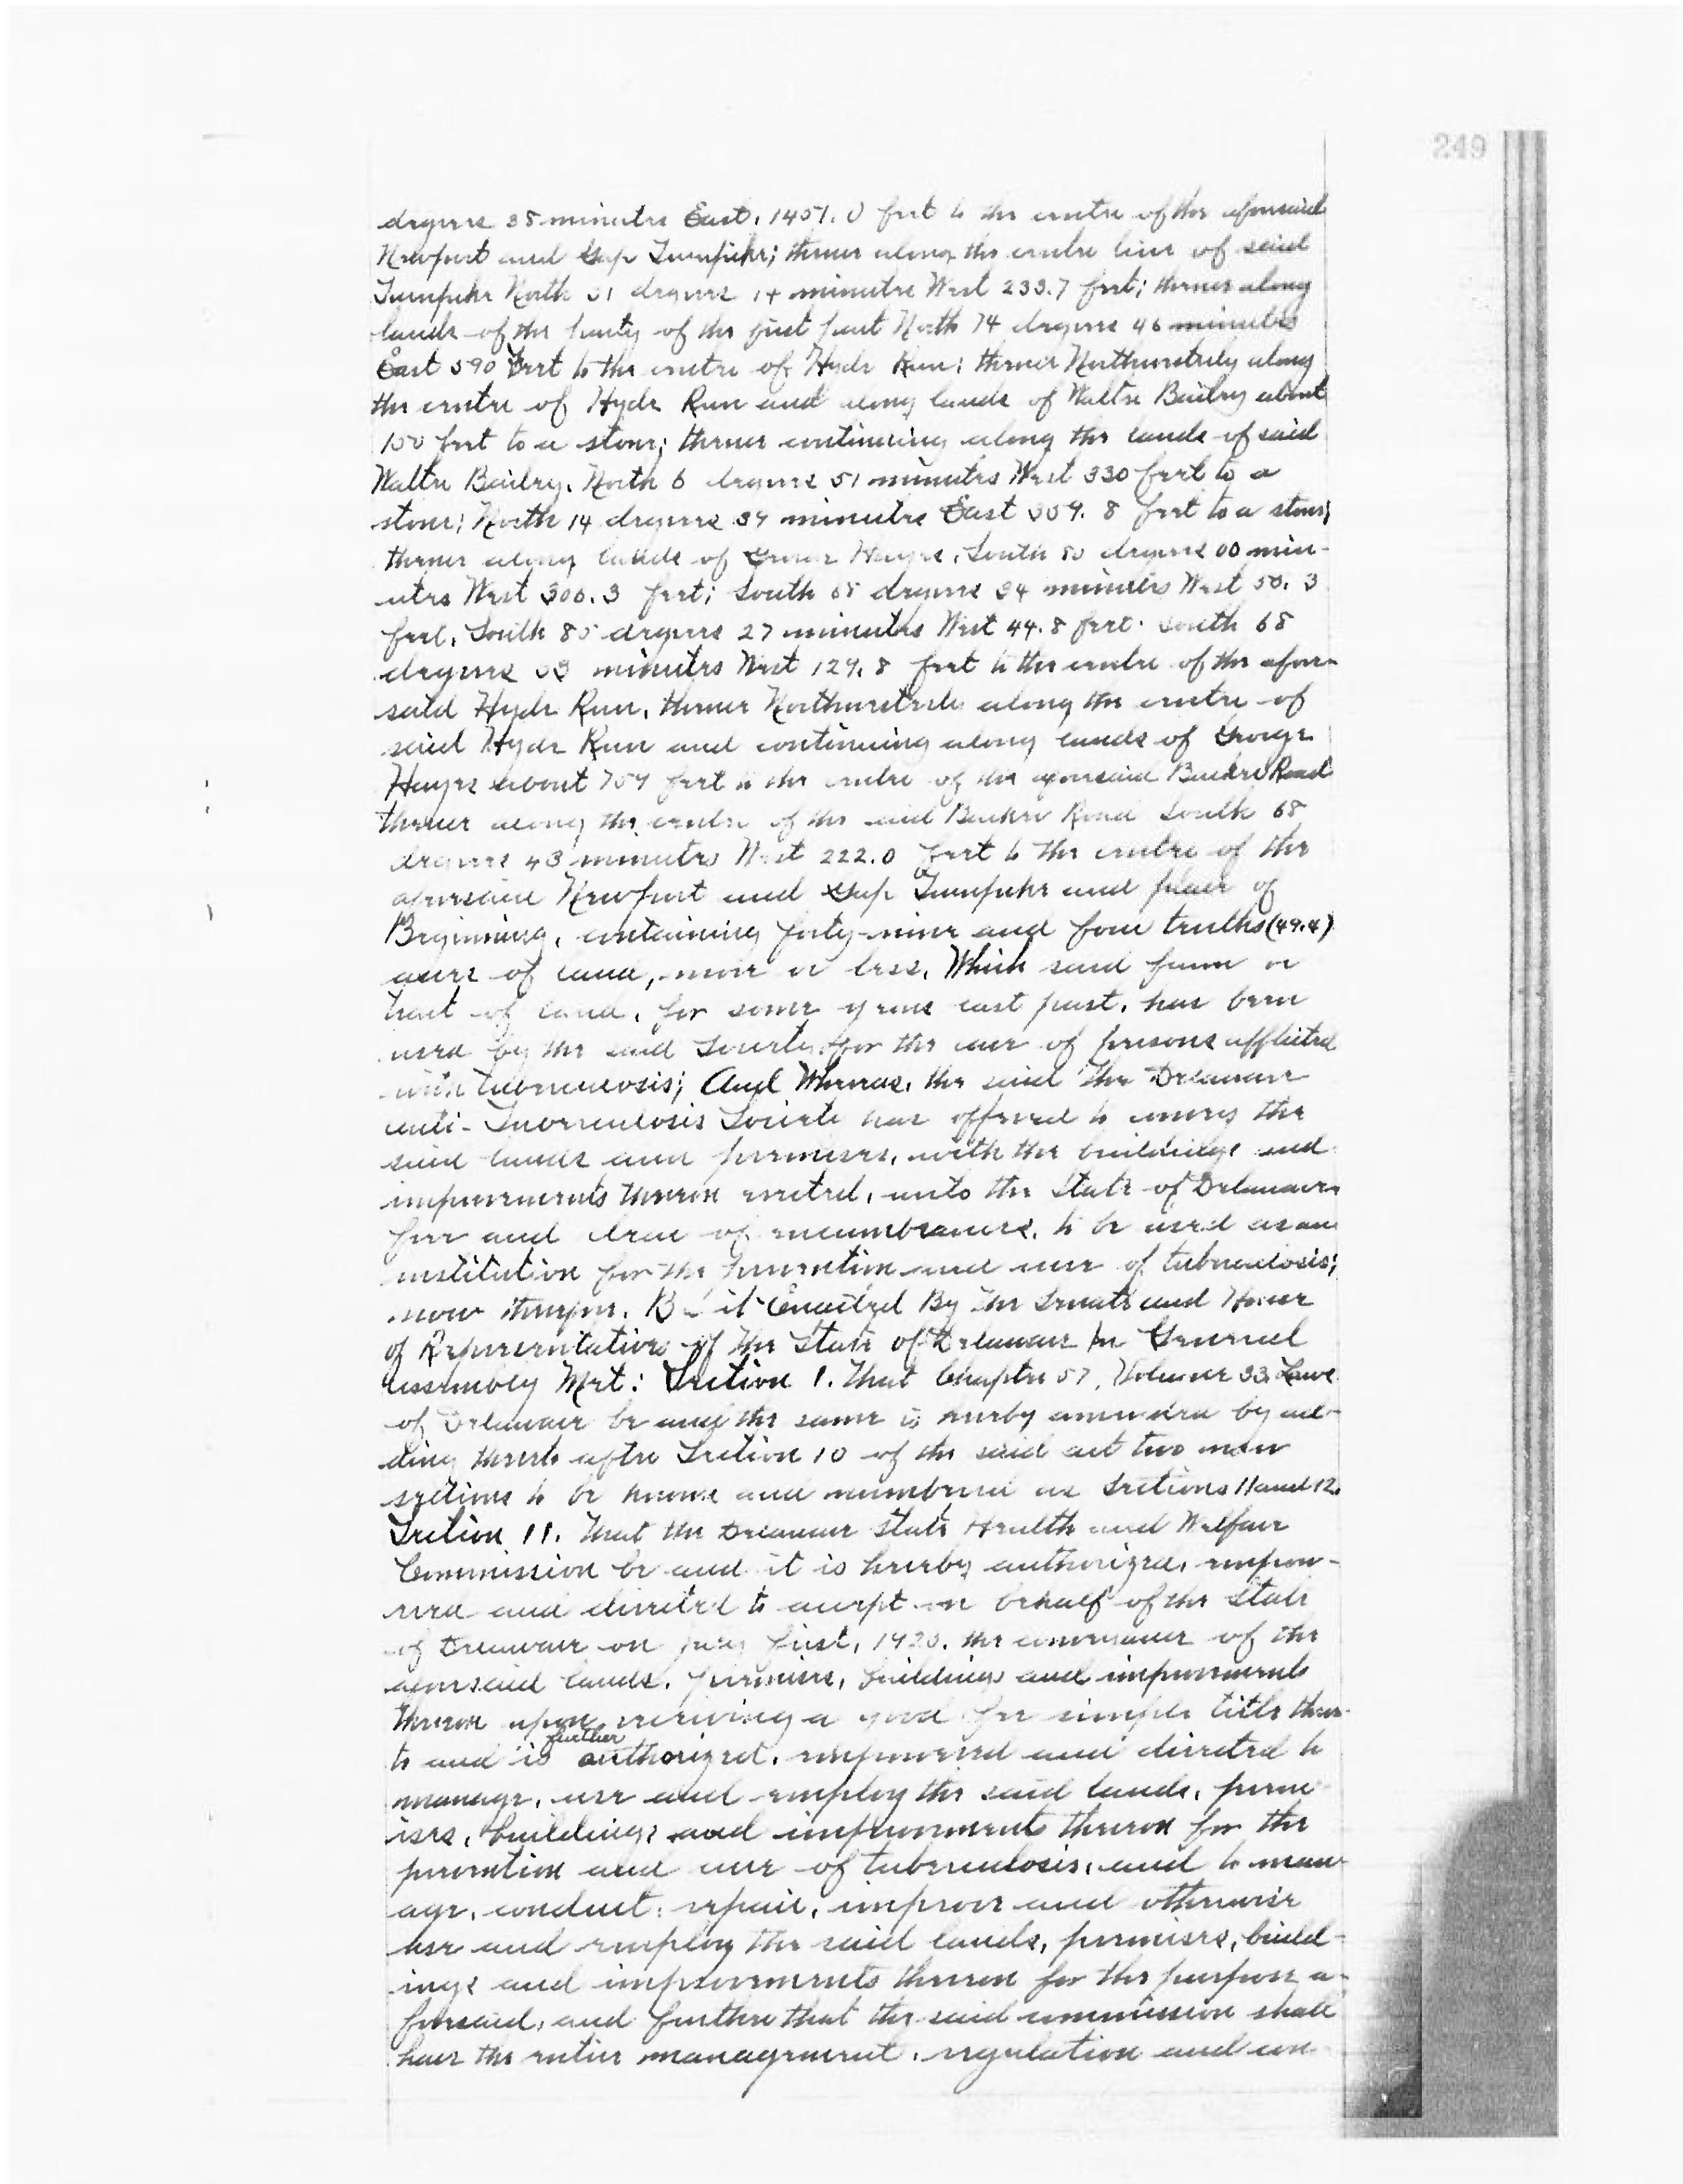 249
degrees 38 minutes East, 1451.0 feet to the centre of the aforesaid
Newport and Gap Turnpike; thence along the centre line of said
Turnpike North 31 degrees 14 minutes West 233.7 feet; thence along
lands of the party of the first part North 74 degrees 46 minutes
East 590 feet to the centre of Hyde Run; thence Northwesterly along
the centre of Hyde Run and along lands of Walter Bailey about
150 feet to a stone; thence continuing along the lands of said
Walter Bailey, North 6 degrees 51 minutes West 330 feet to a
stone; North 14 degrees 39 minutes East 359.8 feet to a stone;
thence along lands of Hayes, South 80 degrees 00 min-
utes West 300.3 feet; South 68 degrees 34 minutes West 50.3
feet, South 85 degrees 27 minutes West 44.8 feet. South 68
degrees 53 minutes West 129.8 feet to the centre of the afore-
said Hyde Run, thence Northwesterly along the centre of
said Hyde Run and continuing along lands of George
Hayes about 759 feet to the centre of the aforesaid Road
thence along the centre of the said Road South 68
degrees 43 minutes West 222.0 feet to the centre of the
aforesaid Newport and Gap Turnpike and place of
Beginning, containing forty-nine and four tenths (49.4)
acres of land, more or less, Which said farm or
tract of land, for some years last past, has been
used by the said Society for the care of persons afflicted
with tuberculosis; And Whereas, the said The Delaware
anti-Tuberculosis Society has offered to convey the
said lands and premises, with the buildings and
improvements thereon erected, unto the State of Delaware
free and clear of encumbrances, to be used as an
institution for the prevention and cure of tuberculosis;
now therefore, Be it Enacted By the Senate and House
of Representatives of the State of Delaware In General
assembly Met: Section 1. That Chapter 57, Volume 33, Laws
of Delaware be and the same is hereby amended by ad-
ding thereto after Section 10 of the said act two new
sections to be known and numbered as Sections 11 and 12.
Section 11. That the Delaware State Health and Welfare
Commission be and it is hereby authorized, empow-
ered and directed to accept on behalf of the State
of Delaware on July first, 1925, the conveyance of the
aforesaid lands, premises, buildings and improvements
thereon upon receiving a good fee simple title there-
to and is further authorized, empowered and directed to
manage, use and employ the said lands, prem-
ises, buildings and improvements thereon for the
prevention and cure of tuberculosis, and to man-
age, conduct, repair, improve and otherwise
use and employ the said lands, premises, build-
ings and improvements thereon for the purpose a-
foresaid, and further that the said commission shall
have the entire management, regulation and con-